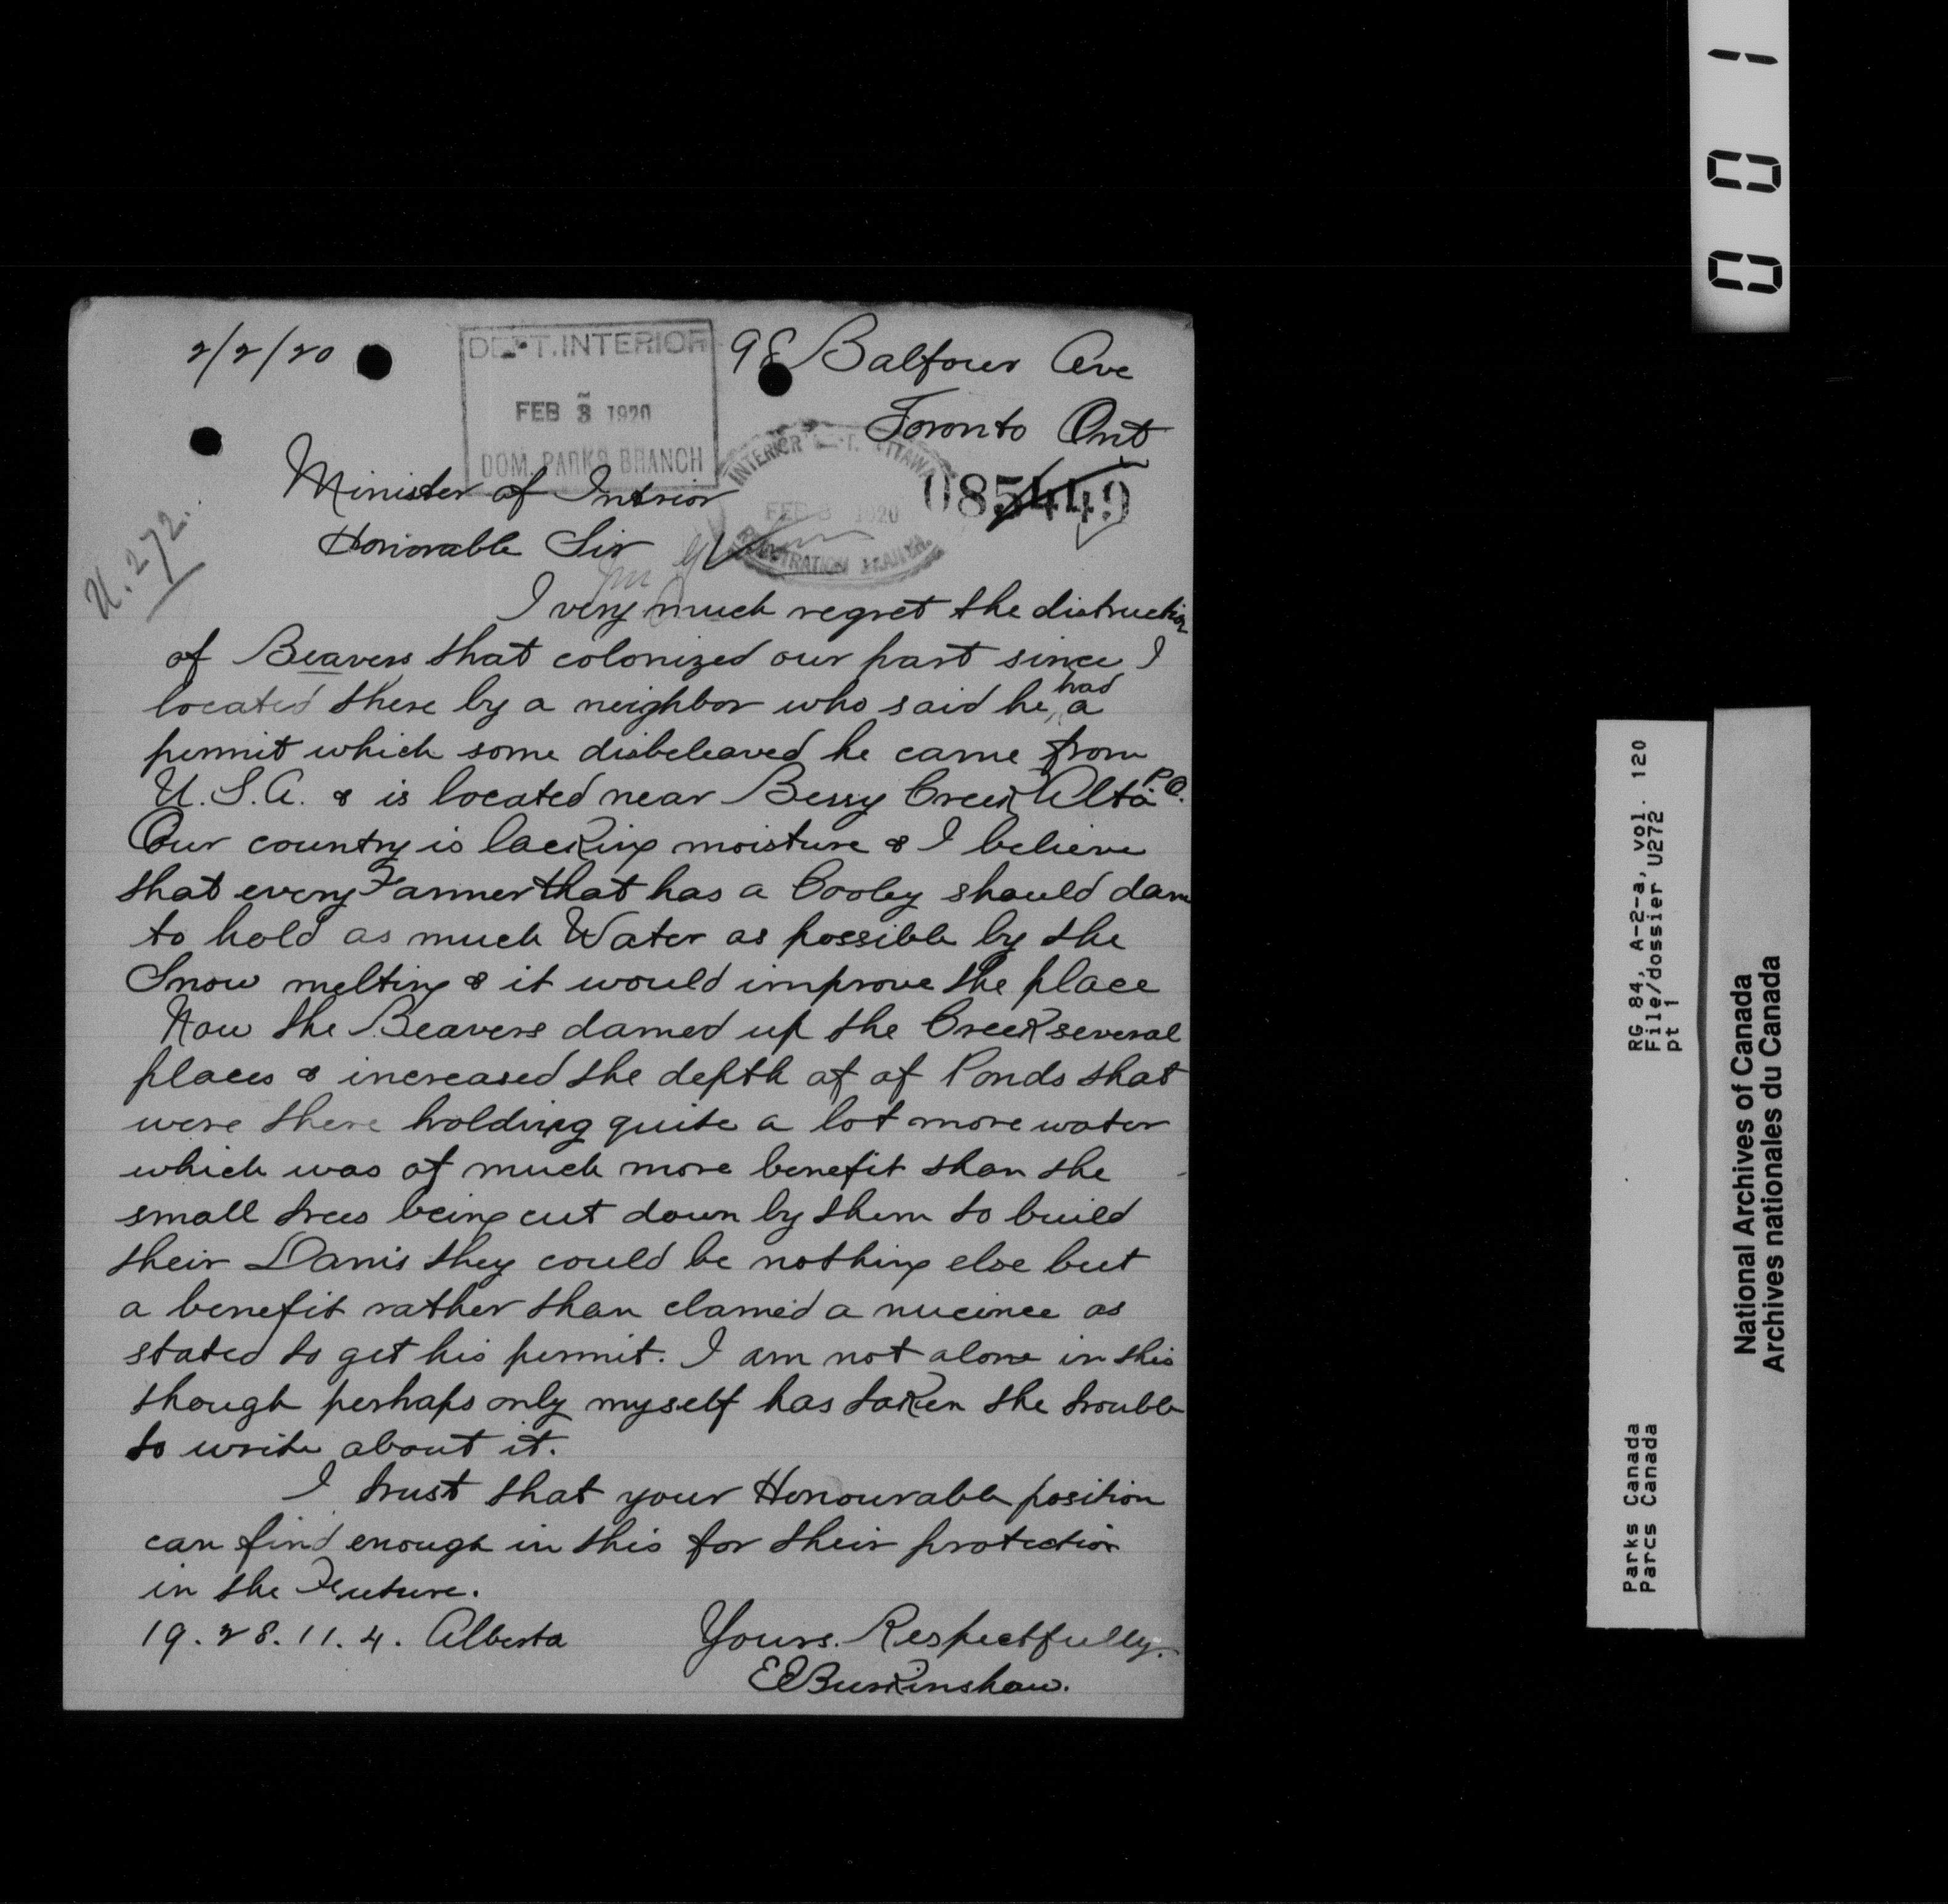 001
2/2/20
98 Balfour Ave
Toronto Ont
DEPT. INTERIOR
FEB 3 1920
DOM. PARKS BRANCH
INTERIOR DEPT. OTTAWA
FEB 3 1920
REGISTRATION BRANCH
085449
U.272.
Minister of Intrior
Honorable Sir
I very much regret the distruction
of Beavers that colonized our part since I
located there by a neighbor who said he had a
permit which some disbeleaved he came from
U.S.A. & is located near Berry Creek Alta P.O.
Our country is lacking moisture & I believe
that every Farmer that has a Cooley should dam
to hold as much Water as possible by the
Snow melting & it would improve the place
Now the Beavers damed up the Creek several
places & increased the depth of of Ponds that
were there holding quite a lot more water
which was of much more benefit than the
small trees being cut down by them to build
their Dams they could be nothing else but
a benefit rather than clamed a nucince as
stated to get his permit. I am not alone in this
though perhaps only myself has taken the trouble
to write about it.
I trust that your Honourable position
can find enough in this for their protection
in the Future.
19.28.11.4. Alberta
Yours. Respectfully.
E Burkinshaw.
RG 84, A-2-a, vol. 120
File/dossier U272
pt 1
Parks Canada
Parcs Canada
National Archives of Canada
Archives nationales du Canada